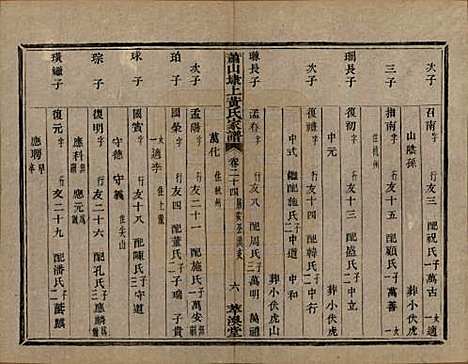 次子
召南 字 行友三 配祝氏 子萬古
山陰孫 一適
三子
指南 字 行友十五 配顧氏 子萬善
住杭州 一
瑞長子
復初 字 行友十三 配盛氏 子中立
葬小伏虎山
次子
復禮 字 行友十四 配施氏 二子中道
中式 繼配 中和
葬小伏虎山
聯長子
孟春 字 行友八 配周氏 三子萬明 萬禩
葬小伏虎
蕭山埭上黃氏家譜 卷二十四 六 萃渙堂
次子
孟陽 字 行友二十一 配施氏 三子萬安
萬化 住杭州
珀子
國榮 字 行友四 配董氏 二子瑞 子貴
球子
國賓 字 行友十八 配陳氏 三子守道
一適李 住上董
守德 守義 住尖山
琮子
復明 字 行友二十六 配孔氏 三子
應科 應元
璜繼子
復元 字 行友二十九 配潘氏 二子
應聘 早卒